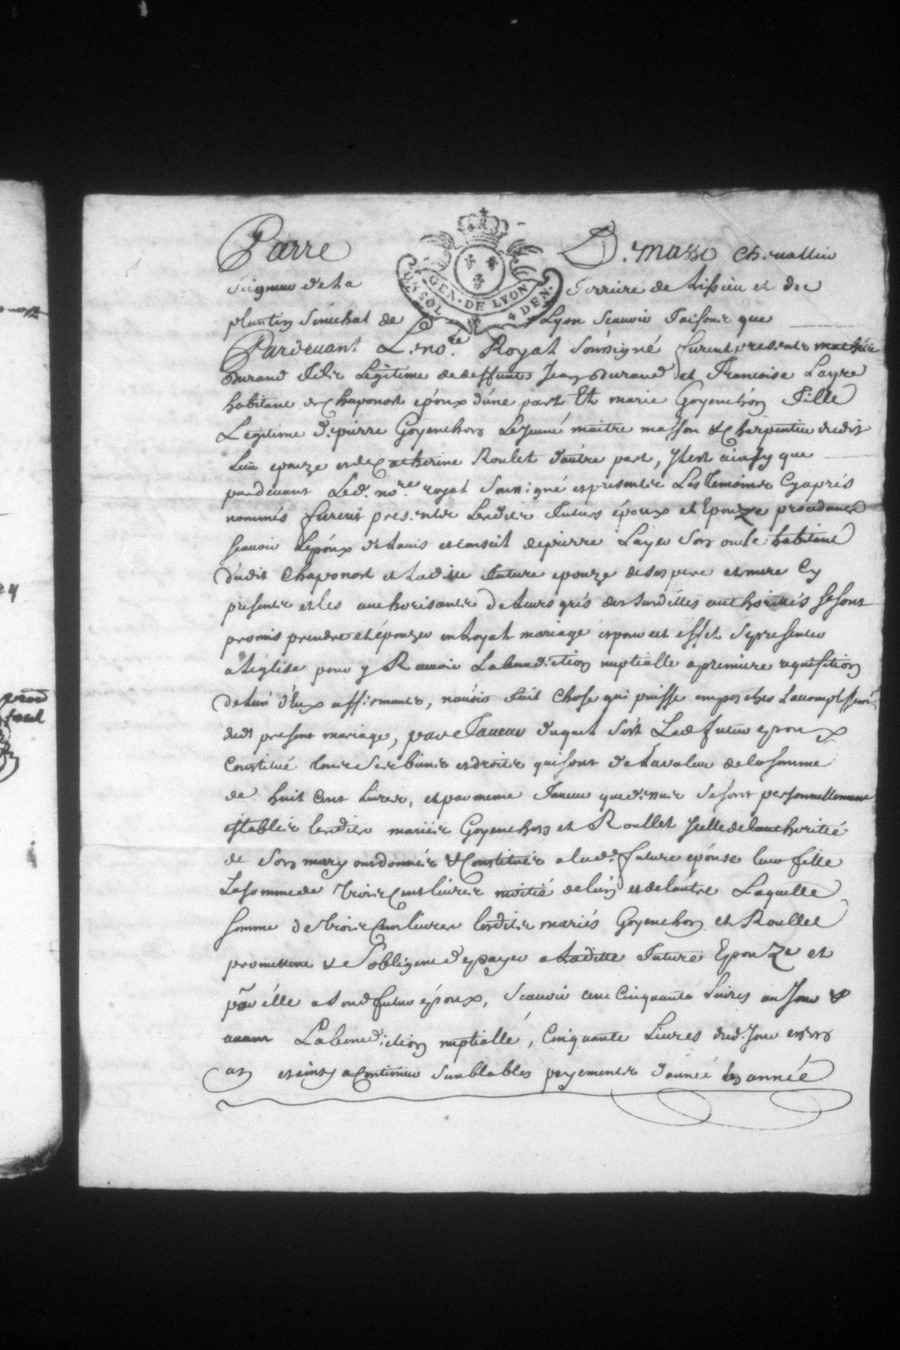 Pierre D. masso Chevallier
Seigneur de la ferriere de Lissieu et du
GEN. DE LYON
UN SOL 4 DEN.
plantin Senechal de Lyon Scavoir faisons que
Pardevant Le no.re Royal Sousigné furent presents
Durand fils Legitime de deffunts Jean Durand et Francoise Layre
habitant de Chaponost epoux d'une part Et marie Goyenchon Fille
Legitime de pierre Goyenchon Lejeune maitre masson & Charpentier dudit
Lieu epouze et de Catherine Roulet d'autre part, Il est ainsy que
pardevant Led. no.re royal Soussigné et presents Les Temoins Cyaprès
nommés furent presents Lesdits futurs époux et Epouze procedants
Scavoir Lepoux de l'avis et conseil de pierre Layre Son oncle habitant
dudit Chaponost et Ladite future epouze de ses pere et mere Cy
presents et Les authorisants De leurs grés desdittes authorités Se sont
promis prendre et épouzer en Loyal mariage et pour cet effet Se presenter
a Leglise pour y Recevoir La benediction nuptialle a premiere requisition
De Lun d'Eux affirmants, n'avoir fait Chose qui puisse empecher Laccomplissem.t
dudt present mariage, par et en faveur Duquel S'est Led. futur epoux
Constitué tous Ses biens et droits qui sont de la valeur de la somme
de huit Cent Livres, et par meme faveur que dessus Se sont personnellement
Establis lesdits mariés Goyenchon et Roullet Icelle de Lauthorité
de Son mary ont donnés & Constitués a lad. future epouse leur fille
La somme de trois Cent livres moitié de lun et de lautre Laquelle
Somme de trois Cent livres lesdits mariés Goyenchon et Roullet
promettent & S'obligent de payer a Laditte future Epouze et
par élle a Sond. futur époux, Scavoir cent Cinquante Livres au Jour &
avant La benediction nuptiallé, Cinquante Livres dud. Jour en un
an et ainsy a Continuer Semblables payements d'année en année